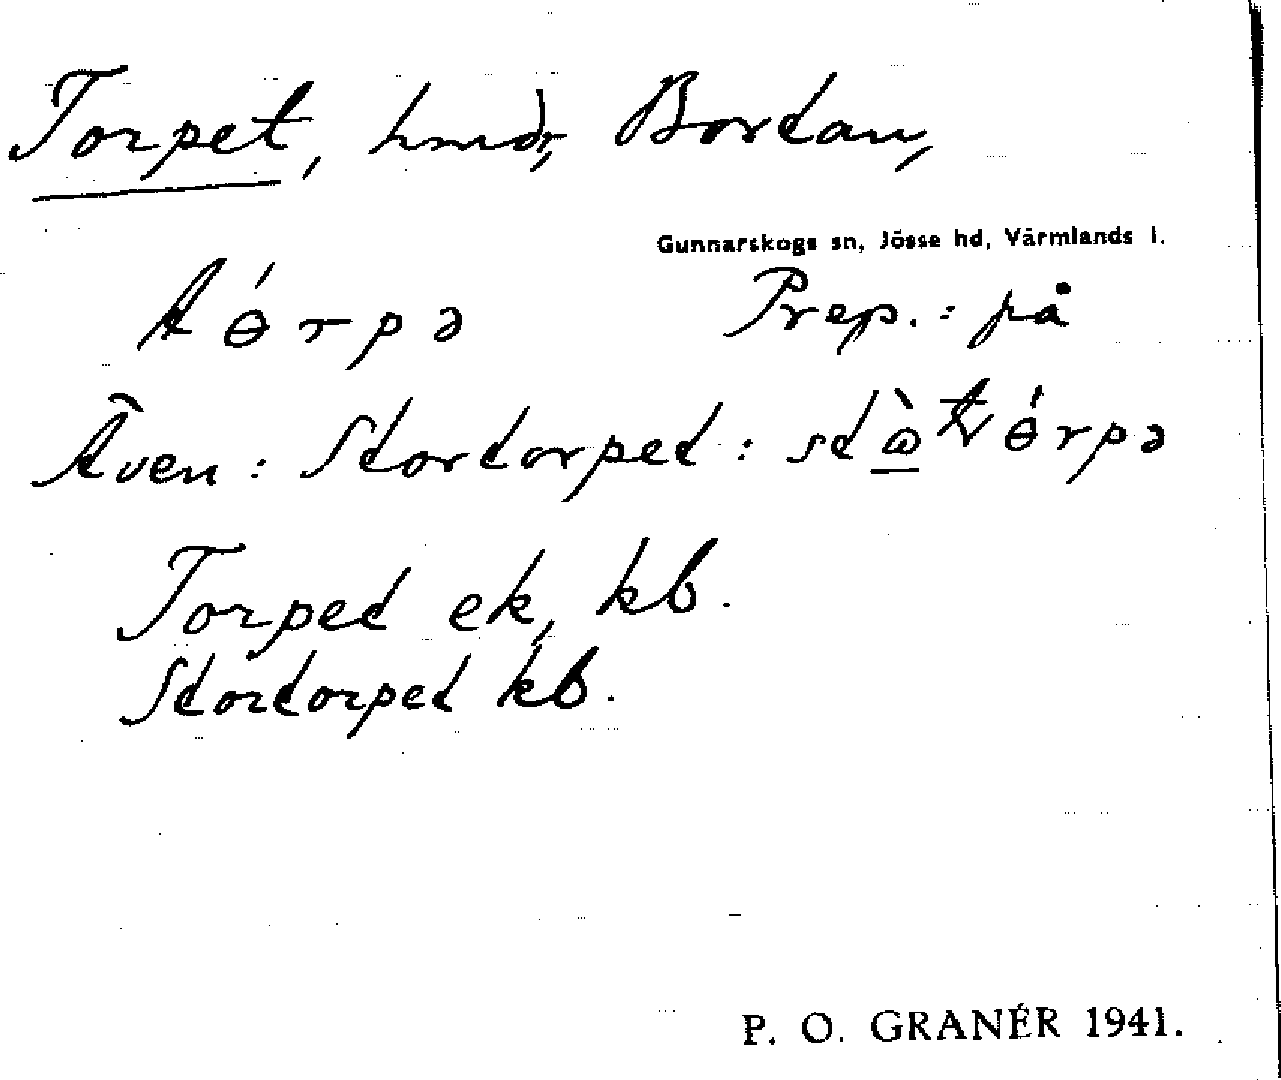 Torpet, hmdr, Bortan,
Gunnarskogs sn, Jösse hd, Värmlands l.
tɵ́rpə Prep.: på
Även: Stortorpet: stɷ̀tɵ́rpə
Torpet ek, kb.
Stortorpet kb.
P. O. GRANÉR 1941.